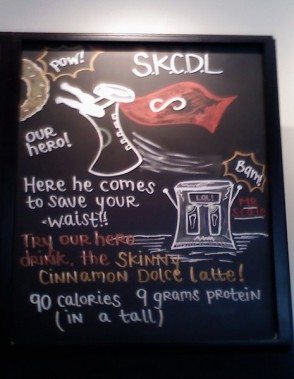 POW!
S.K.C.D.L
S
OUR
HERO!
Bam!
HERE HE COMES
TO SAVE YOUR
-WAIST!!
LOL!
MR
TRY OUR HERO
DRINK, THE SKINNY
CINNAMON DOLCE LATTE!
90 CALORIES 9 GRAMS PROTEIN
(IN A TALL)